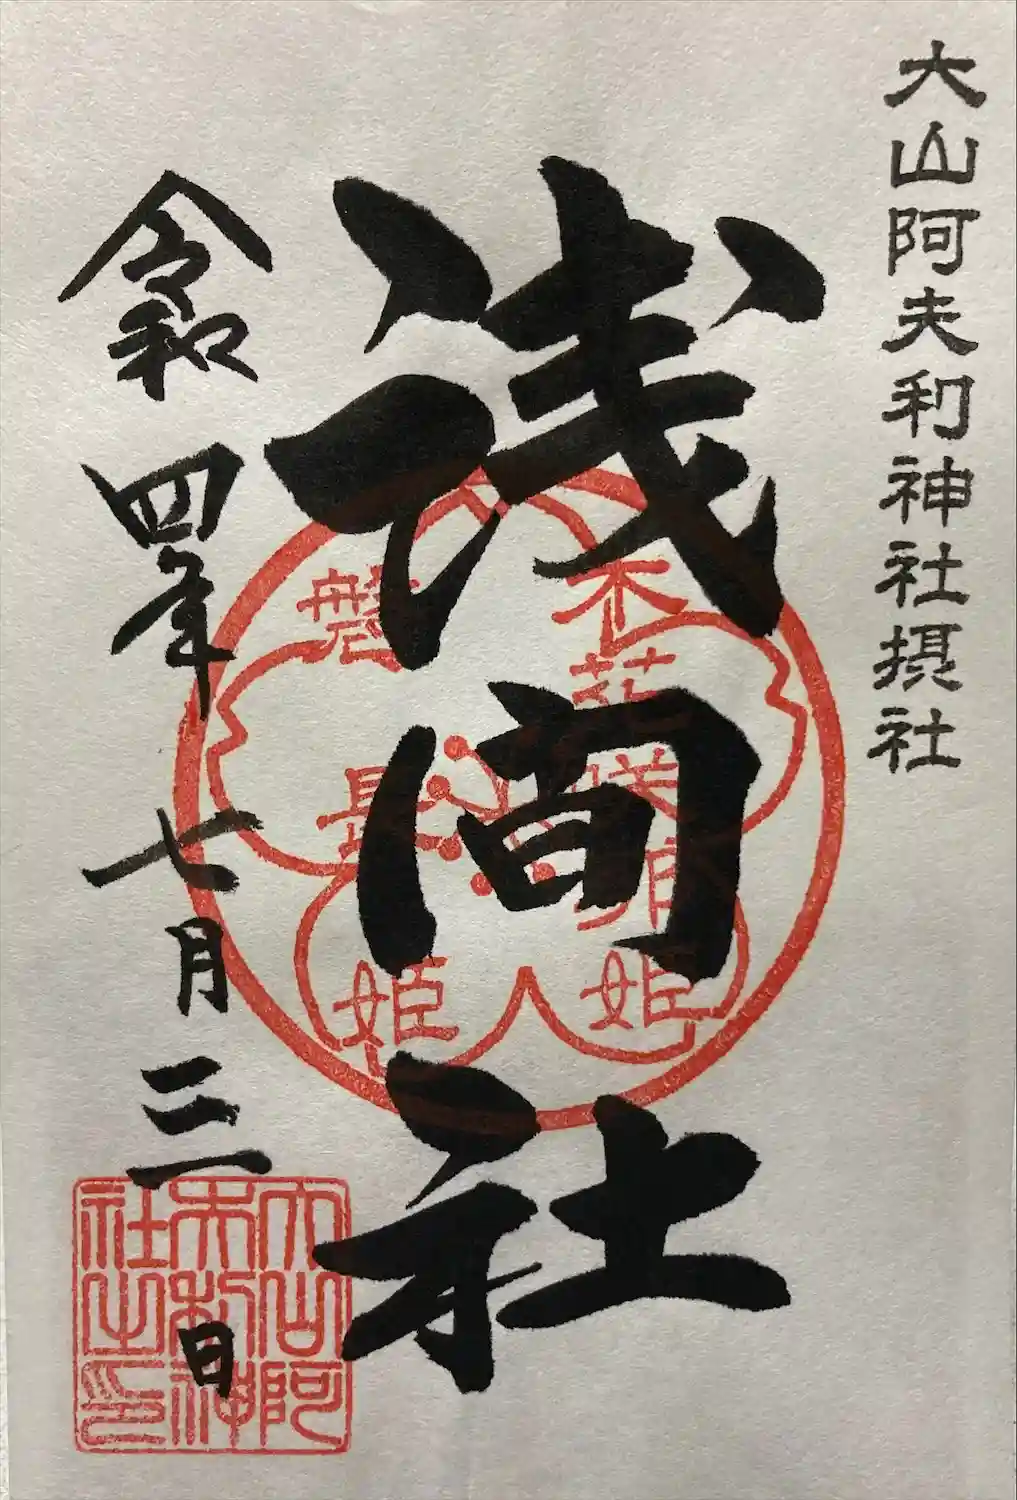 大山阿夫利神社摂社
浅間社
木花咲耶姫
磐長姫
令和四年七月三日
大山阿夫利神社之印